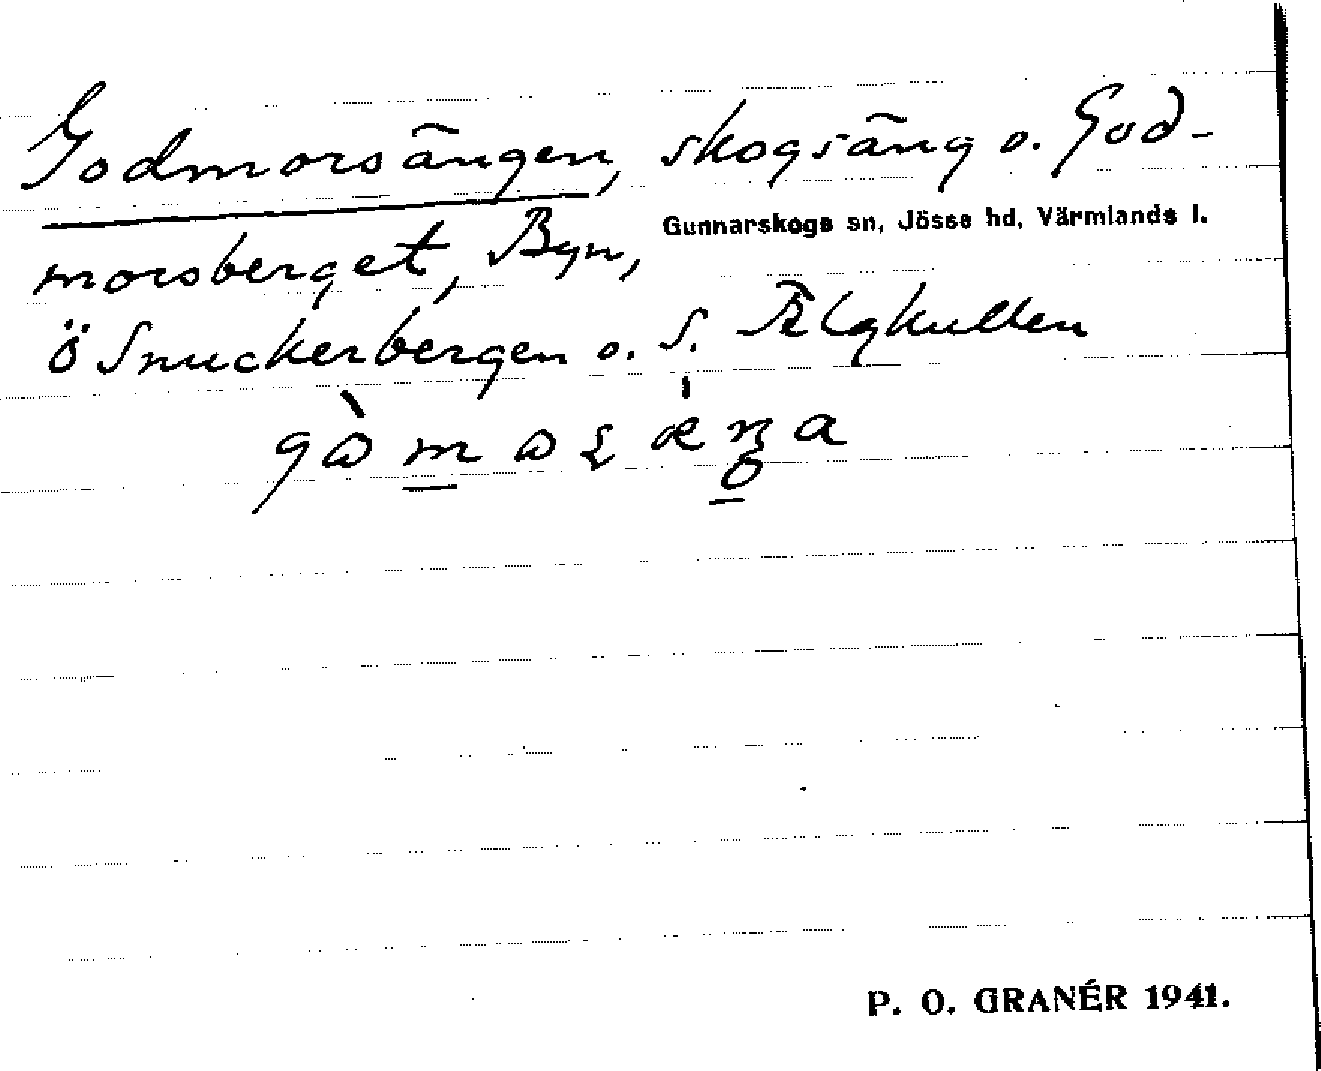 Godmorsängen, skogsäng o. God-
Gunnarskogs sn, Jösse hd, Värmlands l.
morsberget, Byn,
ö Snuckerbergen o. S. Älgkullen
P. O. GRANÉR 1941.